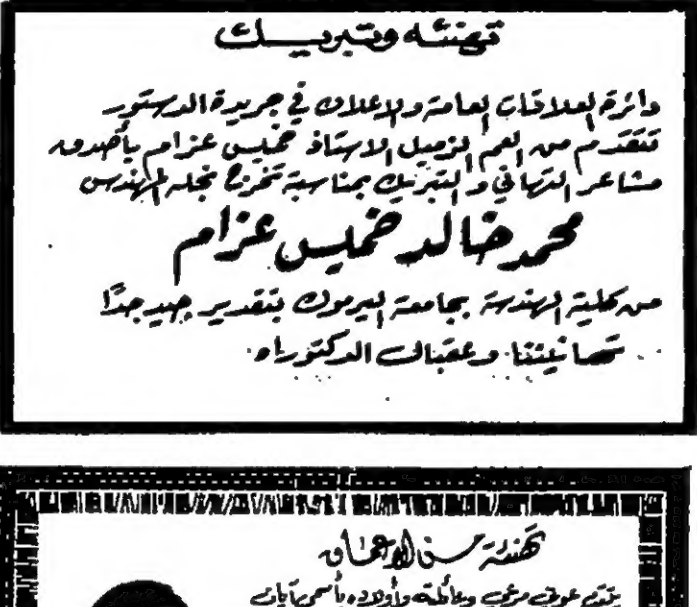 تهنئه وتبريك
دائرة العلاقات العامة والاعلان في جريدة الدستور
تتقدم من العم الزميل الاستاذ خميس عزام بأصدق
مشاعر التهاني والتبريك بمناسبة تخرج نجله المهندس
محمد خالد خميس عزام
من كلية الهندسة بجامعة اليرموك بتقدير جيد جدًا
تهانينا وعقبال الدكتوراه.
تهنئة من الاعماق
يتقدم عوني مرعي وعائلته وأولاده بأسمى آيات